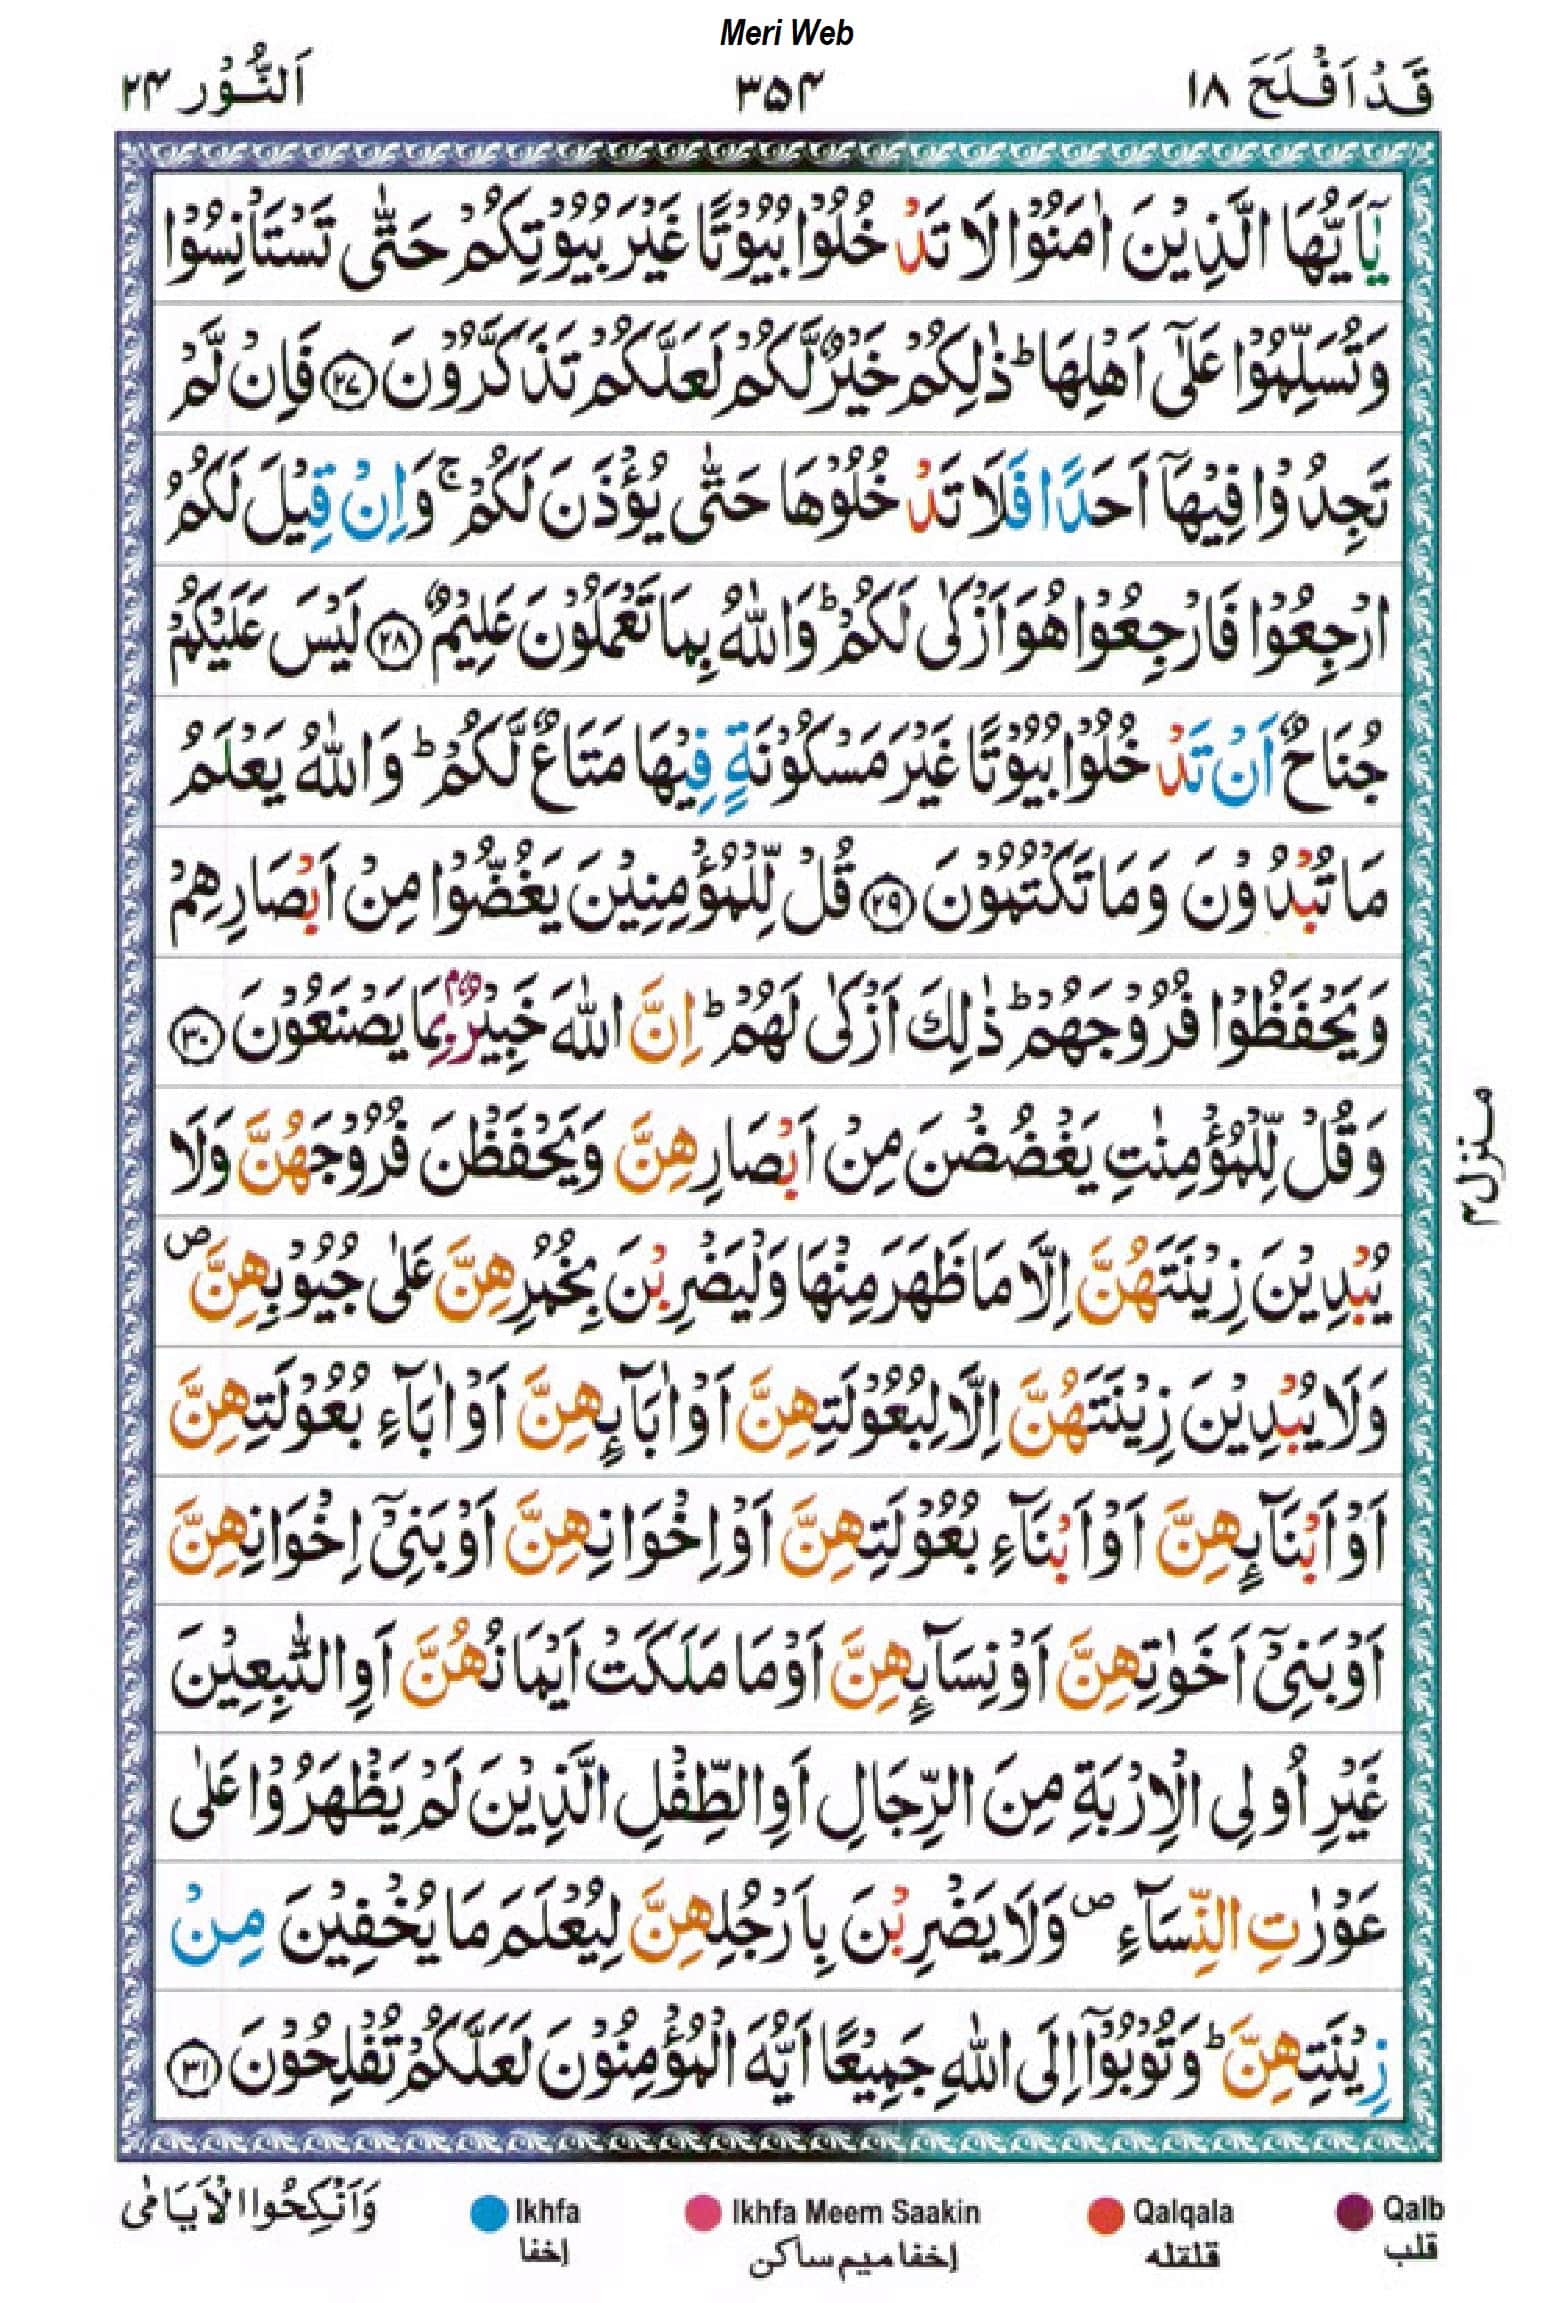 Meri Web
قَدْ اَفْلَحَ ۱۸
۳۵۴
اَلنُّوْر ۲۴
يٰۤاَيُّهَا الَّذِيْنَ اٰمَنُوْا لَا تَدْخُلُوْا بُيُوْتًا غَيْرَ بُيُوْتِكُمْ حَتّٰى تَسْتَاْنِسُوْا
وَتُسَلِّمُوْا عَلٰٓى اَهْلِهَا ؕ ذٰلِكُمْ خَيْرٌ لَّكُمْ لَعَلَّكُمْ تَذَكَّرُوْنَ ﴿۲۷﴾ فَاِنْ لَّمْ
تَجِدُوْا فِيْهَاۤ اَحَدًا فَلَا تَدْخُلُوْهَا حَتّٰى يُؤْذَنَ لَكُمْ ۚ وَاِنْ قِيْلَ لَكُمُ
ارْجِعُوْا فَارْجِعُوْا هُوَ اَزْكٰى لَكُمْ ؕ وَاللّٰهُ بِمَا تَعْمَلُوْنَ عَلِيْمٌ ﴿۲۸﴾ لَيْسَ عَلَيْكُمْ
جُنَاحٌ اَنْ تَدْخُلُوْا بُيُوْتًا غَيْرَ مَسْكُوْنَةٍ فِيْهَا مَتَاعٌ لَّكُمْ ؕ وَاللّٰهُ يَعْلَمُ
مَا تُبْدُوْنَ وَمَا تَكْتُمُوْنَ ﴿۲۹﴾ قُلْ لِّلْمُؤْمِنِيْنَ يَغُضُّوْا مِنْ اَبْصَارِهِمْ
وَيَحْفَظُوْا فُرُوْجَهُمْ ؕ ذٰلِكَ اَزْكٰى لَهُمْ ؕ اِنَّ اللّٰهَ خَبِيْرٌۢ بِمَا يَصْنَعُوْنَ ﴿۳۰﴾
وَقُلْ لِّلْمُؤْمِنٰتِ يَغْضُضْنَ مِنْ اَبْصَارِهِنَّ وَيَحْفَظْنَ فُرُوْجَهُنَّ وَلَا
يُبْدِيْنَ زِيْنَتَهُنَّ اِلَّا مَا ظَهَرَ مِنْهَا وَلْيَضْرِبْنَ بِخُمُرِهِنَّ عَلٰى جُيُوْبِهِنَّ ۪
وَلَا يُبْدِيْنَ زِيْنَتَهُنَّ اِلَّا لِبُعُوْلَتِهِنَّ اَوْ اٰبَآىِٕهِنَّ اَوْ اٰبَآءِ بُعُوْلَتِهِنَّ
اَوْ اَبْنَآىِٕهِنَّ اَوْ اَبْنَآءِ بُعُوْلَتِهِنَّ اَوْ اِخْوَانِهِنَّ اَوْ بَنِيْۤ اِخْوَانِهِنَّ
اَوْ بَنِيْۤ اَخَوٰتِهِنَّ اَوْ نِسَآىِٕهِنَّ اَوْ مَا مَلَكَتْ اَيْمَانُهُنَّ اَوِ التّٰبِعِيْنَ
غَيْرِ اُولِى الْاِرْبَةِ مِنَ الرِّجَالِ اَوِ الطِّفْلِ الَّذِيْنَ لَمْ يَظْهَرُوْا عَلٰى
عَوْرٰتِ النِّسَآءِ ۪ وَلَا يَضْرِبْنَ بِاَرْجُلِهِنَّ لِيُعْلَمَ مَا يُخْفِيْنَ مِنْ
زِيْنَتِهِنَّ ؕ وَتُوْبُوْۤا اِلَى اللّٰهِ جَمِيْعًا اَيُّهَ الْمُؤْمِنُوْنَ لَعَلَّكُمْ تُفْلِحُوْنَ ﴿۳۱﴾
منزل۴
وَاَنْكِحُوا الْاَيَامٰى
Ikhfa Ikhfa Meem Saakin Qalqala Qalb
إخفا إخفا ميم ساكن قلقله قلب